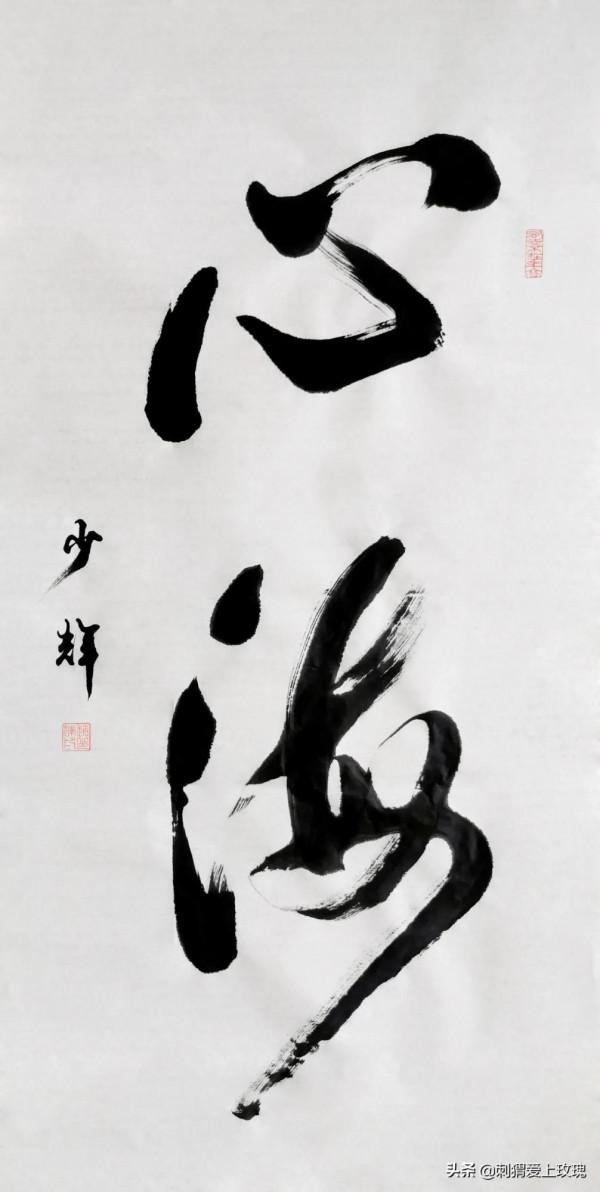 心海
少辉
头条 @刺猬爱上玫瑰